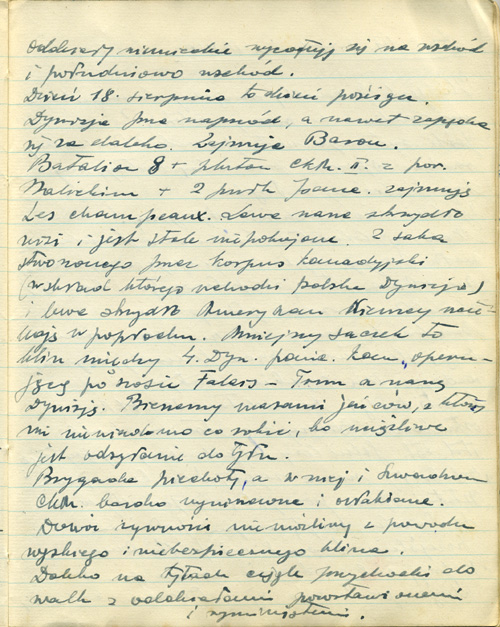 Oddziały niemieckie wycofują się na wschód
i południowo wschód.
Dzień 18. sierpnia to dzień pościgu.
Dywizja prze naprzód, a nawet zapędza
się za daleko. Zajmuje Barou.
Batalion 8 + pluton ckm. II. z por.
+ 2 pułk panc. zajmują
Les champeaux. Lewe nasze skrzydło
wisi i jest stale niepokojone. Z saka
stworzonego przez korpus kanadyjski
(w skład którego wchodzi polska Dywizja)
i lewe skrzydło Amerykan Niemcy
w popłochu. Mniejszy saczek to
klin między 4. Dyw. panc. kan., operu-
jącą po szosie Falais – Trun a naszą
Dywizją. Bierzemy masami jeńców, z który-
mi niewiadomo co robić, bo niemożliwe
jest odsyłanie do tyłu.
Brygada piechoty, a w niej i Szwadron
CKM. bardzo wyczerpane i
Dowóz żywności niemożliwy z powodu
wąskiego i niebezpiecznego klina.
Daleko na tyłach ciągle przychodzi do
walk z oddziałami pozostawionemi
i